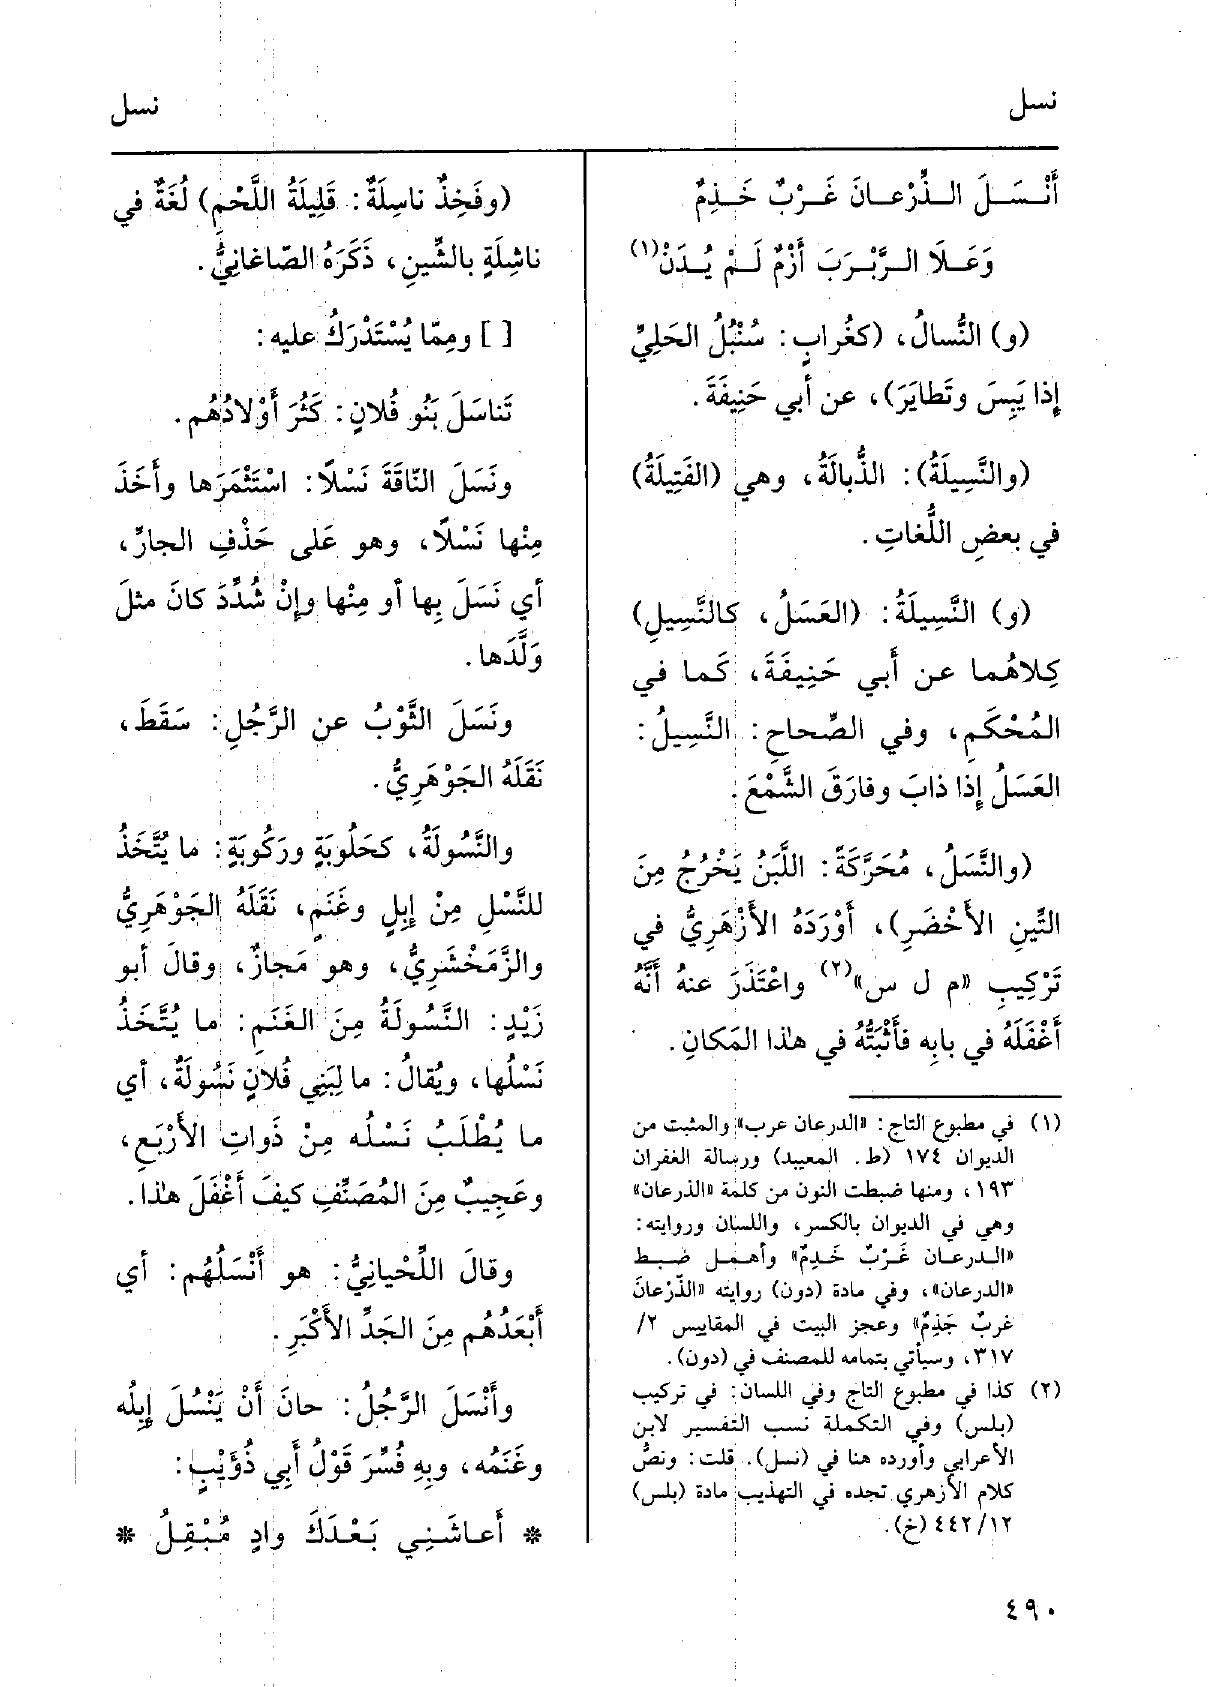 نسل
نسل
أَنْـسَـلَ الـذِّرْعـانَ غَـرْبٌ خَـذِمٌ
وَعَـلَا الـرَّبْـرَبَ أَزْمٌ لَـمْ يُـدَنْ(١)
(و) النُّسالُ، (كغُرابٍ: سُنْبُلُ الحَلِيِّ
إِذا يَبِسَ وتَطايَرَ)، عن أبي حَنِيفَةَ.
(والنَّسِيلَةُ): الذُّبالَةُ، وهي (الفَتِيلَةُ)
في بعضِ اللُّغاتِ.
(و) النَّسِيلَةُ: (العَسَلُ، كالنَّسِيلِ)
كِلاهُما عن أَبي حَنِيفَةَ، كَما في
المُحْكَمِ، وفي الصِّحاحِ: النَّسِيلُ:
العَسَلُ إِذا ذابَ وفارَقَ الشَّمْعَ.
(والنَّسَلُ، مُحَرَّكَةً: اللَّبَنُ يَخْرُجُ مِنَ
التِّينِ الأَخْضَرِ)، أَوْرَدَهُ الأَزْهَرِيُّ في
تَرْكِيبِ «م ل س»(٢) واعْتَذَرَ عنهُ أَنَّهُ
أَغْفَلَهُ في بابِه فأَثْبَتَهُ في هٰذا المَكانِ.
(١) في مطبوع التاج: «الدرعان عرب» والمثبت من
الديوان ١٧٤ (ط. المعيبد) ورسالة الغفران
١٩٣، ومنها ضبطت النون من كلمة «الذرعان»
وهي في الديوان بالكسر، واللسان وروايته:
«الـدرعـان غَـرْبٌ خَـدِمٌ» وأهـمـل ضـبـط
«الدرعان»، وفي مادة (دون) روايته «الذّرْعانَ
غربٌ جَذِمٌ» وعجز البيت في المقاييس ٢/
٣١٧، وسيأتي بتمامه للمصنف في (دون).
(٢) كذا في مطبوع التاج وفي اللسان: في تركيب
(بلس) وفي التكملة نسب التفسير لابن
الأعرابي وأورده هنا في (نسل). قلت: ونصُّ
كلام الأزهري تجده في التهذيب مادة (بلس)
٤٤٢/١٢ (خ).
(وفَخِذٌ ناسِلَةٌ: قَلِيلَةُ اللَّحْمِ) لُغَةٌ في
ناشِلَةٍ بالشِّينِ، ذَكَرَهُ الصّاغانِيُّ.
[ ] ومِمّا يُسْتَدْرَكُ عليه:
تَناسَلَ بَنُو فُلانٍ: كَثُرَ أَوْلادُهُم.
ونَسَلَ النّاقَةَ نَسْلًا: اسْتَثْمَرَها وأَخَذَ
مِنْها نَسْلًا، وهو عَلى حَذْفِ الجارِّ،
أي نَسَلَ بِها أو مِنْها وإِنْ شُدِّدَ كانَ مثلَ
وَلَّدَها.
ونَسَلَ الثَّوْبُ عن الرَّجُلِ: سَقَطَ،
نَقَلَهُ الجَوْهَرِيُّ.
والنَّسُولَةُ، كحَلُوبَةٍ ورَكُوبَةٍ: ما يُتَّخَذُ
للنَّسْلِ مِنْ إِبِلٍ وغَنَمٍ، نَقَلَهُ الجَوْهَرِيُّ
والزَّمَخْشَرِيُّ، وهو مَجازٌ، وقالَ أبو
زَيْدٍ: النَّسُولَةُ مِنَ الغَنَمِ: ما يُتَّخَذُ
نَسْلُها، ويُقالُ: ما لِبَنِي فُلانٍ نَسُولَةٌ، أي
ما يُطْلَبُ نَسْلُه مِنْ ذَواتِ الأَرْبَعِ،
وعَجِيبٌ مِنَ المُصَنِّفِ كيفَ أَغْفَلَ هٰذا.
وقالَ اللِّحْيانِيُّ: هو أَنْسَلُهُم: أي
أَبْعَدُهُم مِنَ الجَدِّ الأَكْبَرِ.
وأَنْسَلَ الرَّجُلُ: حانَ أَنْ يَنْسُلَ إِبِلُه
وغَنَمُه، وبِهِ فُسِّرَ قَوْلُ أَبِي ذُؤَيْبٍ:
* أَعـاشَـنِـي بَـعْـدَكَ وادٍ مُـبْـقِـلُ *
٤٩٠